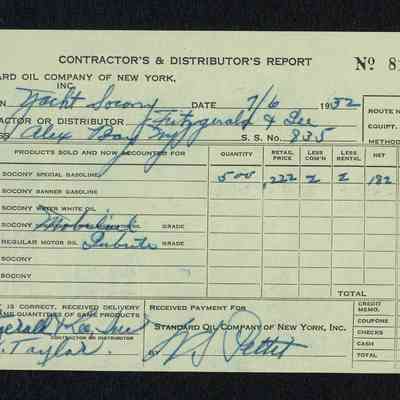 CONTRACTOR'S & DISTRIBUTOR'S REPORT Nº 81
ARD OIL COMPANY OF NEW YORK, INC.
N Yacht Socony DATE 7/6 1932
ROUTE N
ACTOR OR DISTRIBUTOR Fitzgerald & Lee
EQUIPT.
SS Alex Bay NY S. S. NO. 835
METHOD
PRODUCTS SOLD AND NOW ACCOUNTED FOR QUANTITY RETAIL PRICE LESS COM'N LESS RENTAL NET
SOCONY SPECIAL GASOLINE 500 .222 2 2 182
SOCONY BANNER GASOLINE
SOCONY WATER WHITE OIL
SOCONY Mobiloil GRADE
REGULAR MOTOR OIL GRADE
SOCONY
SOCONY
TOTAL
IS CORRECT, RECEIVED DELIVERY AND QUANTITIES OF SAME PRODUCTS
RECEIVED PAYMENT FOR
STANDARD OIL COMPANY OF NEW YORK, INC.
CREDIT MEMO.
COUPONS
CHECKS
CASH
TOTAL
gerald & Lee Inc
CONTRACTOR OR DISTRIBUTOR
Taylor Pettit